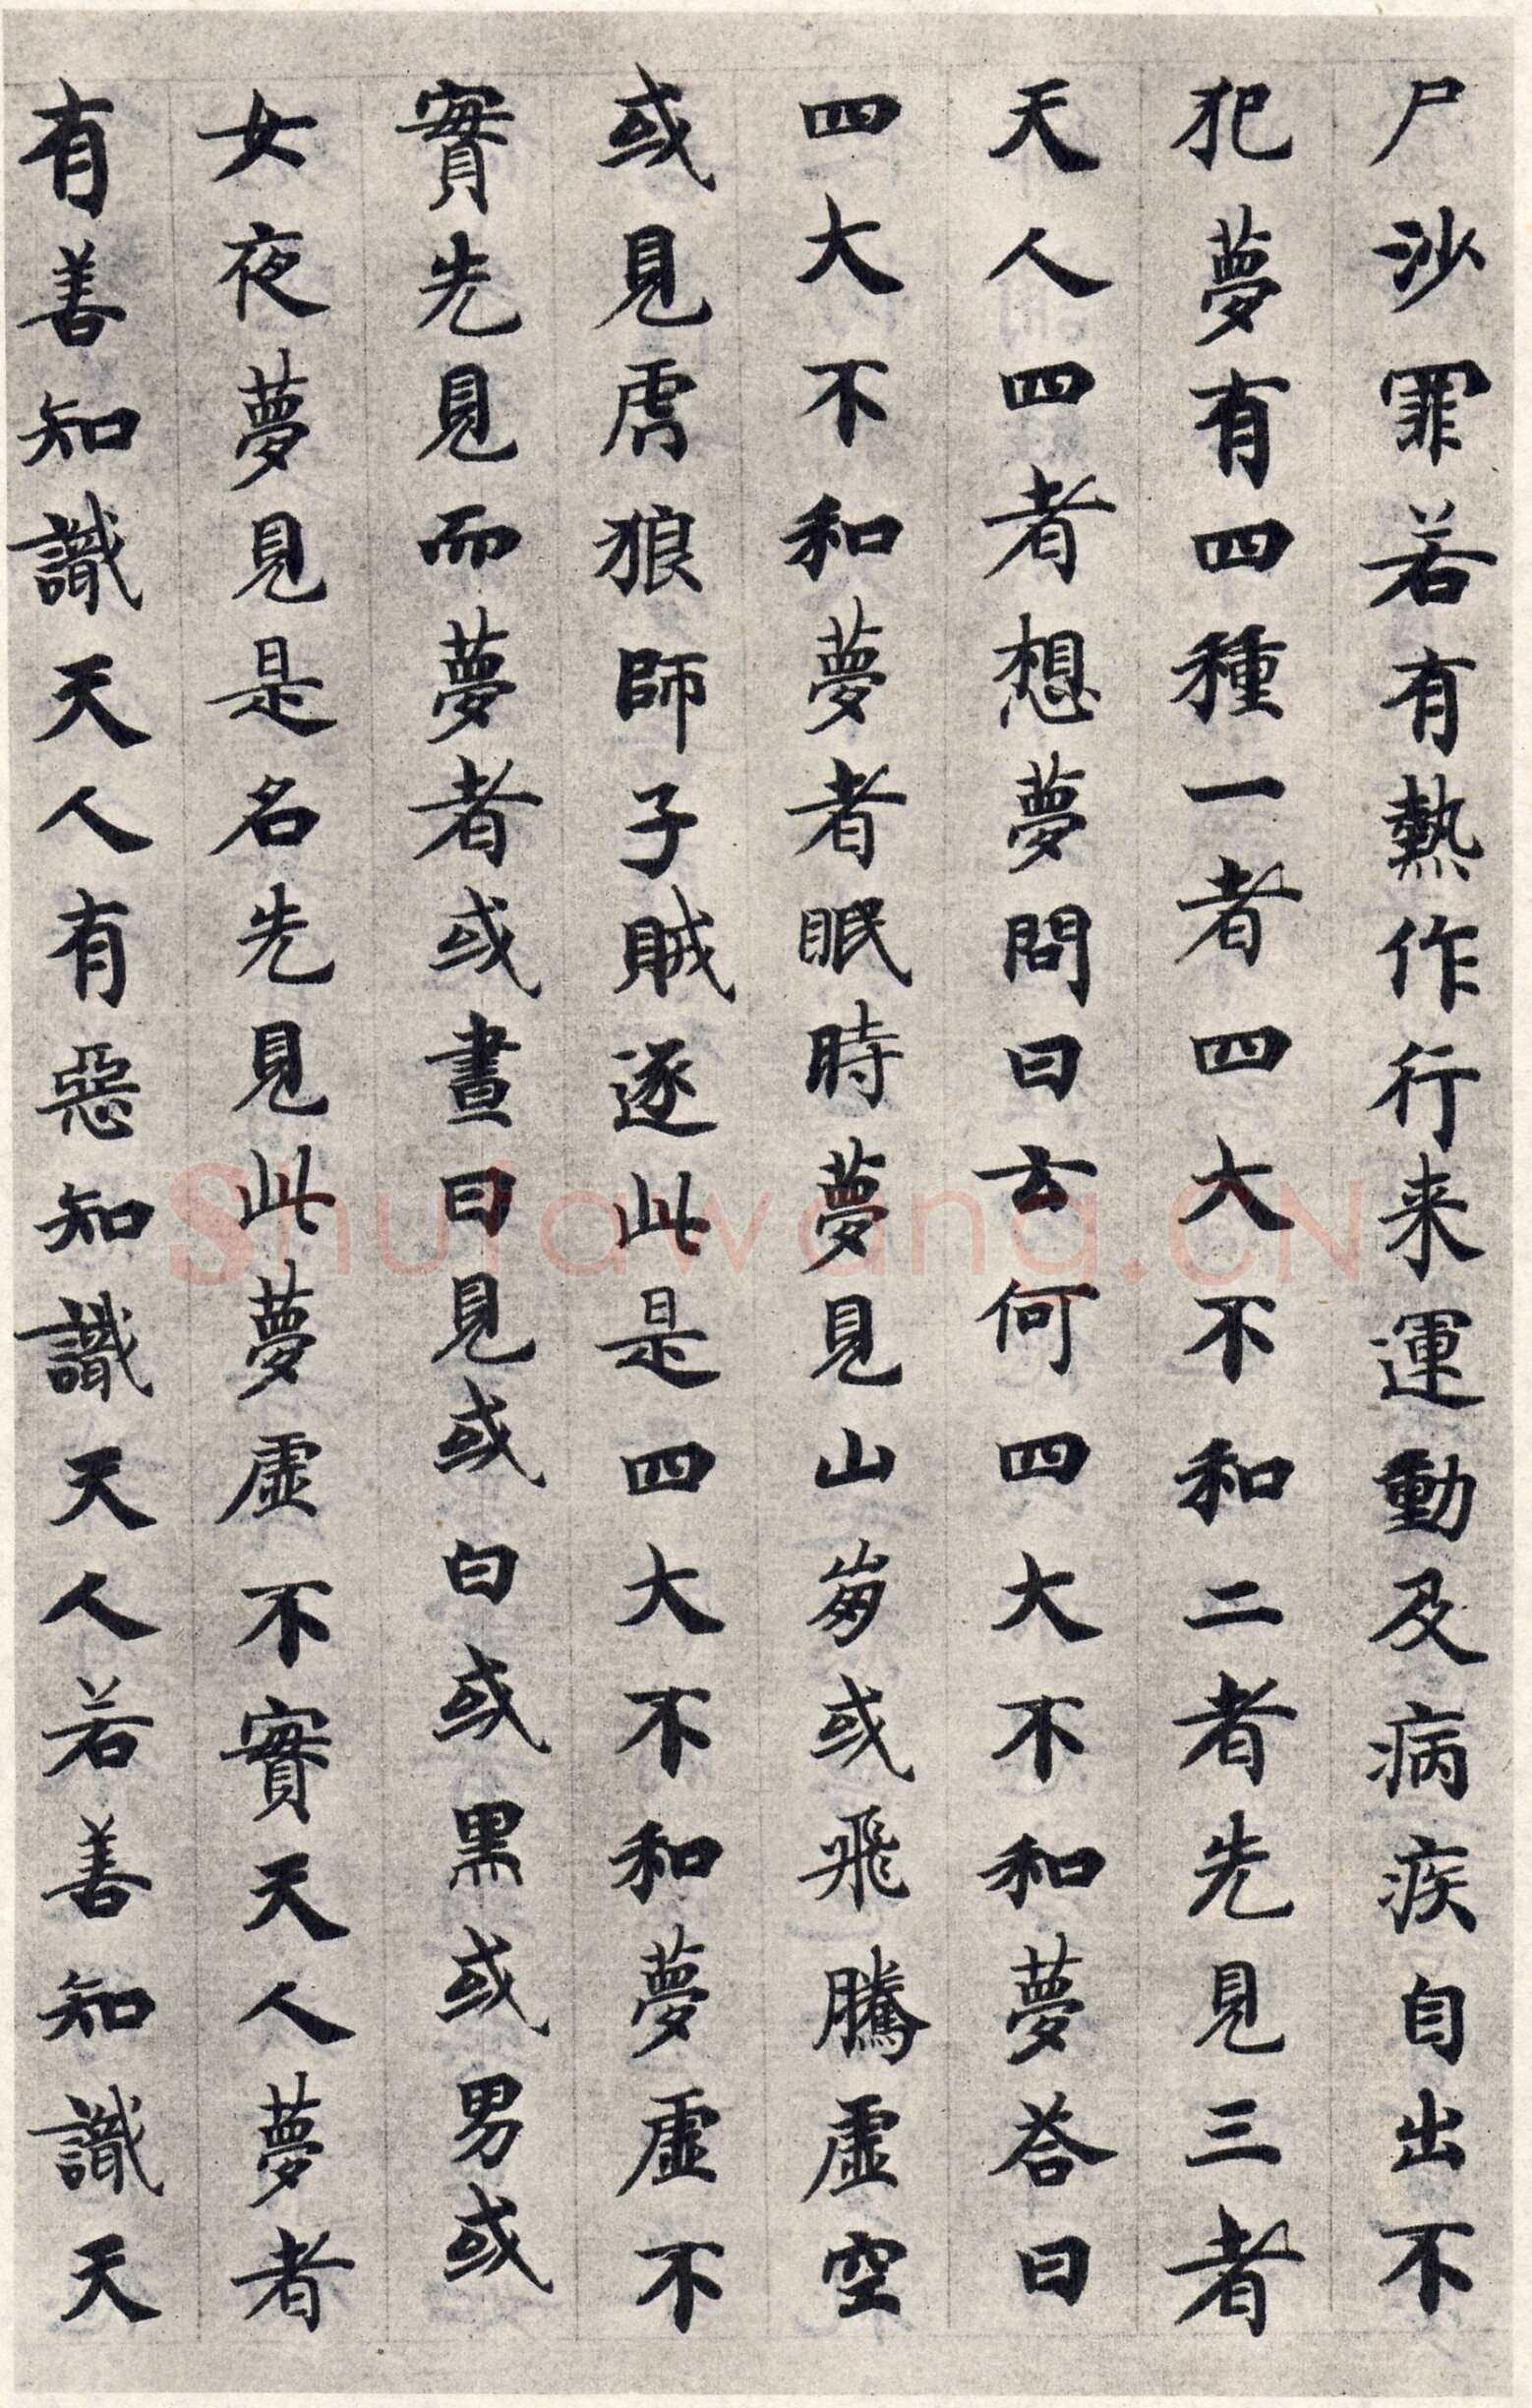 尸沙罪若有熱作行来運動及病疾自出不
犯夢有四種一者四大不和二者先見三者
天人四者想夢問曰云何四大不和夢荅曰
四大不和夢者眠時夢見山崩或飛騰虛空
或見虎狼師子賊逐此是四大不和夢虛不
實先見而夢者或晝日見或白或黒或男或
女夜夢見是名先見此夢虛不實天人夢者
有善知識天人有惡知識天人若善知識天
Shufawang.CN